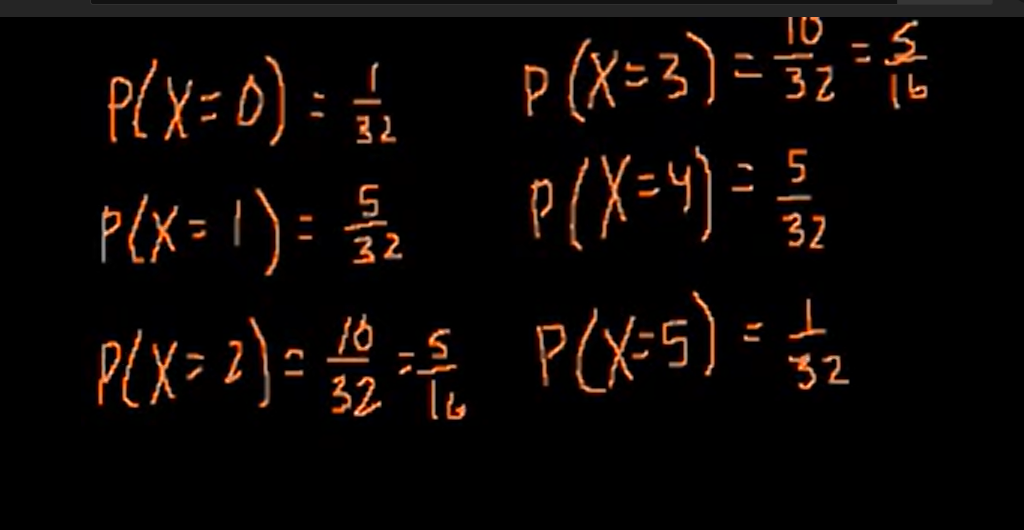 P(X=0) = 1/32
P(X=1) = 5/32
P(X=2) = 10/32 = 5/16
P(X=3) = 10/32 = 5/16
P(X=4) = 5/32
P(X=5) = 1/32